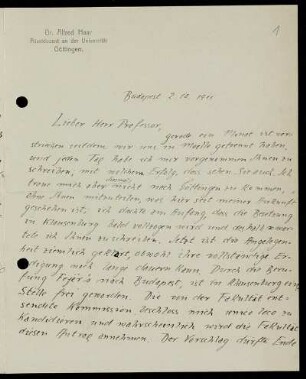 Dr. Alfred Haar
Privatdozent an der Universität
Göttingen.
1
Budapest 2. IX. 1911
Lieber Herr Professor,
gerade ein Monat ist ver-
strichen seitdem wir uns in getrennt haben,
und jeden Tag habe ich mir vorgenommen Ihnen zu
schreiben, mit welchem Erfolg, das sehen Sie auch. Ich
traue mich aber nicht nach Göttingen zu kommen,
ohne Ihnen mitzuteilen, was hier seit meiner Ankunft
geschehen ist. Ich dachte am Anfang, das die Besetzung
in Klausenburg bald vollzogen wird und deshalb wartete
ich Ihnen zu schreiben. Jetzt ist das Angelegen-
heit ziemlich geklärt, obwohl ihre vollständige Er-
ledigung noch lange dauern kann. Durch das Beru-
fung Fejér's nach Budapest, ist in Klausenburg eine
Stelle frei geworden. Die von der Fakultät ent-
sendete Kommission beschloss mich unico loco zu
kandidieren und wahrscheinlich wird die Fakultät
diesen Antrag annehmen. Der Vorschlag dürfte Ende